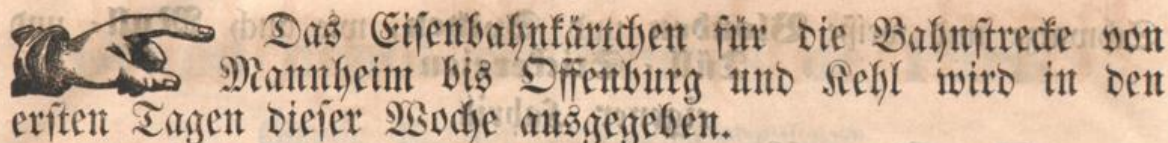 Das Eiſenbahnkärtchen für die Bahnſtrecke von
Mannheim bis Offenburg und Kehl wird in den
erſten Tagen dieſer Woche ausgegeben.